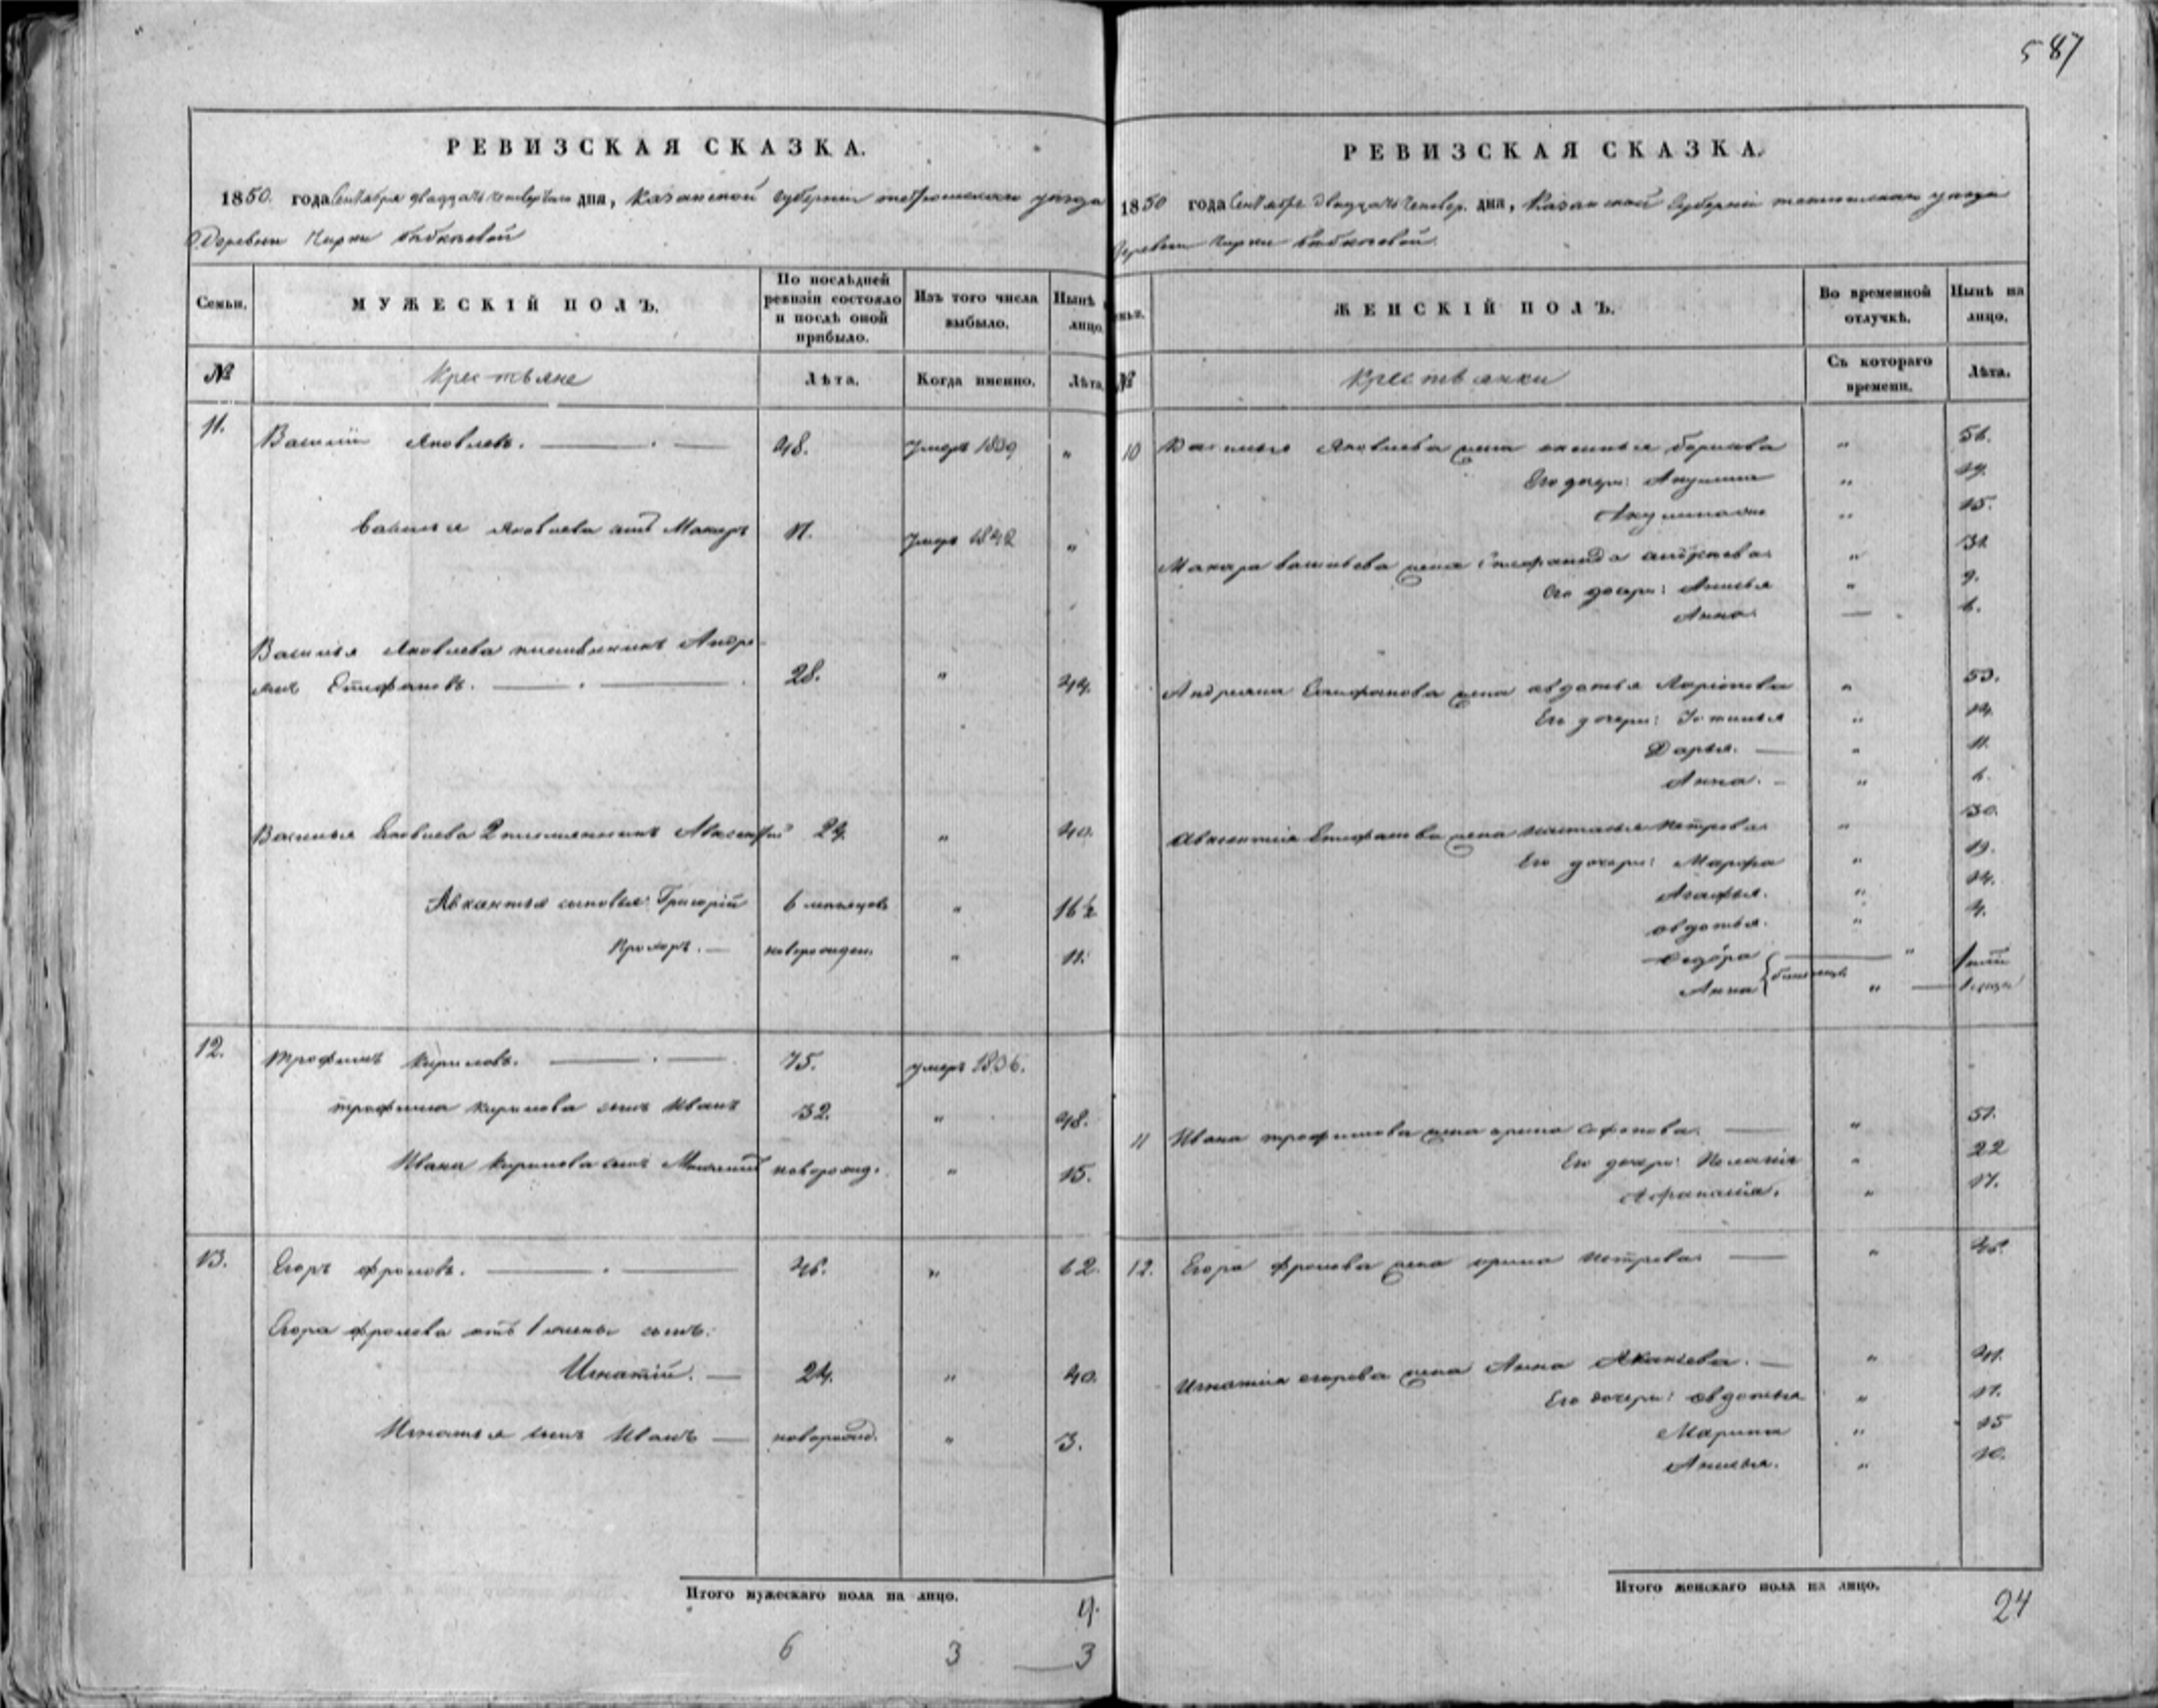 587
РЕВИЗСКАЯ СКАЗКА.
1850. года Сентября двадцать четвертаго дня, Казанской Губернии тетюшскаго уезда
Деревни Чирки
Семьи. МУЖЕСКІЙ ПОЛЪ. По послѣдней ревизіи состояло и послѣ оной прибыло. Изъ того числа выбыло. Нынѣ лицо.
№ Крестьяне Лѣта. Когда именно. Лѣта.
11. Василій Яковлевъ. 48. Умеръ 1839 "
Василья Яковлева сынъ Макаръ 17. Умеръ 1842 "
Василья Яковлева племянникъ Андре-
янъ Епифановъ. 28. " 44.
Василья Яковлева 2 племянникъ Авксентий 24. " 40.
Авксентья сыновья: Григорій 6 месяцовъ " 16½
Прохоръ. новорожден. " 11.
12. Трофимъ Кириловъ. 75. умеръ 1836.
трофима Кирилова сынъ Иванъ 32. " 48.
Ивана Кирилова сынъ новорожд. " 15.
13. Егоръ фроловъ. 46. " 62.
Егора фролова отъ 1 жены сынъ:
Игнатій. 24. " 40.
Игнатья сынъ Иванъ новорожд. " 3.
Итого мужескаго пола на лицо. 4.
6 3 3
РЕВИЗСКАЯ СКАЗКА.
1850 года Сентября двадцать четвер. дня, Казанской Губерніи тетюшскаго уезда
Деревни Чирки
ЖЕНСКІЙ ПОЛЪ. Во временной отлучкѣ. Нынѣ на лицо.
№ Крестьянки Съ котораго времени. Лѣта.
10 Василья Яковлева жена Борисова " 56.
Его дочери: Акулина " 19.
" 15.
Макара васильева жена Епифанида " 31.
Его дочери: Анисья " 9.
Анна. 6.
Андреяна Епифанова жена авдотья Ларіонова " 53.
Его дочери: Устинья " 14.
Дарья. " 11.
Анна. " 6.
Авксентия Епифанова жена Настасья Петрова " 30.
Его дочери: Марфа " 19.
Агафья. " 14.
овдотья. " 4.
Федора "
Анна "
11 Ивана трофимова жена арина Софонова. " 51.
Его дочери: Пелагія " 22
Афанасия. " 17.
12. Егора фролова жена ирина Петрова. " 46.
Игнатия егорова жена Анна Акакіева. " 41.
Его дочери: овдотья " 17.
Марина " 15
Анисья. " 10.
Итого женскаго пола на лицо. 24